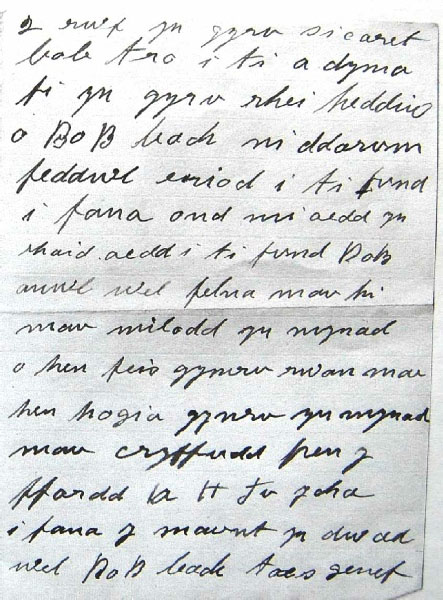 y rwf yn gyrv sicaret
bob tro i ti a dyma
fi yn gyrv rhei heddiw
o BoB bach ni ddarwm
feddwl eriod i ti fund
i fana ond mi aedd yn
rhaid aedd i ti fund BoB
anwl wel felna mav hi
mav milodd yn mynad
o hen feis gymrv rwan mae
hen hogia gymrv yn mynad
mav cryffudd pen y
ffordd
i fana y mawnt yn dwad
wel BoB bach taes genef